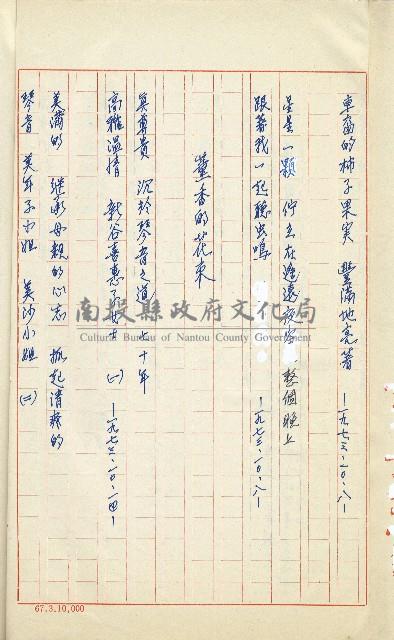 車窗的柿子果实 豐滿地亮着 —一九七三、一0、八—
星星一顆 佇立在遙遠夜空 整個晚上
跟著我一起聽虫鳴 —一九七三、一0、八—
薰香的花束
眞尊貴 沉於琴音之道 七十年
高雅温情 新谷喜惠子女士 (一) —一九七三、一0、一四—
美滿的 継承母親的心志 抓起清稀的
琴音 美年子小姐 美沙小姐 (二)
南投縣政府文化局
Cultural Bureau of Nantou County Government
67.3.10,000